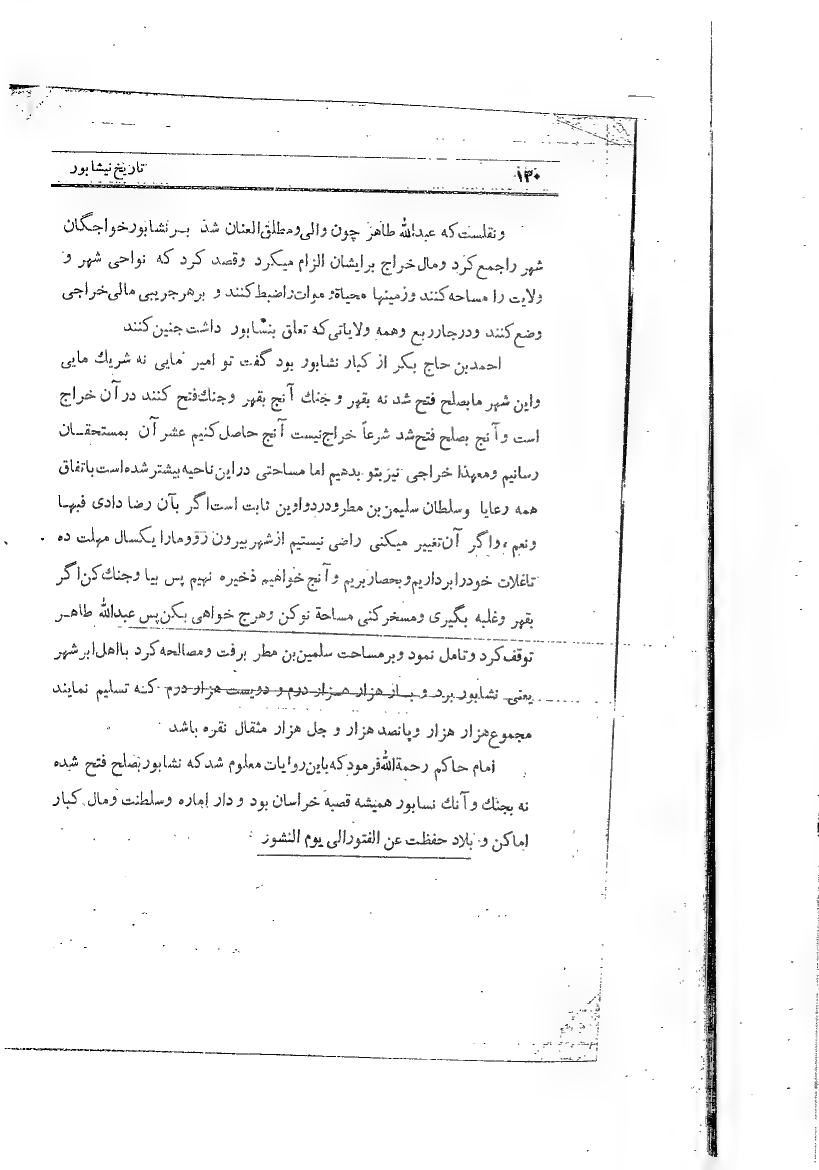 ۱۳۰ تاریخ نیشابور
و نقلست که عبدالله طاهر چون والی و مطلق العنان شد بر نشابور خواجگان
شهر را جمع کرد و مال خراج بر ایشان الزام میکرد و قصد کرد که نواحی شهر و
ولایت را مساحه کنند و زمینها محیاة و موات را ضبط کنند و بر هر جریبی مالی خراجی
وضع کنند و در چار ربع و همه ولایاتی که تعلق بنشابور داشت جنین کنند
احمد بن حاج بکر از کبار نشابور بود گفت تو امیر مایی نه شریك مایی
و این شهر ما بصلح فتح شد نه بقهر و جنك آنج بقهر و جنك فتح کنند در آن خراج
است و آنج بصلح فتح شد شرعاً خراج نیست آنج حاصل کنیم عشر آن بمستحقان
رسانیم و معهذا خراجی نیز بتو بدهیم اما مساحتی در این ناحیه بیشتر شده است باتفاق
همه رعایا و سلطان سلیمن بن مطر و در دواوین ثابت است اگر بآن رضا دادی فبها
و نعم ، و اگر آن تغییر میکنی راضی نیستیم از شهر بیرون رَوْ و ما را یکسال مهلت ده
تا غلات خود را بر داریم و بحصار بریم و آنج خواهیم ذخیره نهیم پس بیا و جنك کن اگر
بقهر و غلبه بگیری و مسخر کنی مساحة نو کن و هرج خواهی بکن پس عبدالله طاهر
توقف کرد و تامل نمود و بر مساحت سلمین بن مطر برفت و مصالحه کرد با اهل ابرشهر
یعنی نشابور برد و بار هزار هزار درم و دویست هزار درم کـه تسلیم نمایند
مجموع هزار هزار و پانصد هزار و جل هزار مثقال نقره باشد
امام حاکم رحمة الله فرمود که باین روایات معلوم شد که نشابور بصلح فتح شده
نه بجنك و آنك نسابور همیشه قصبهٔ خراسان بود و دار اماره و سلطنت و مال کبار
اماکن و بلاد حفظت عن الفتور الی یوم النشوز